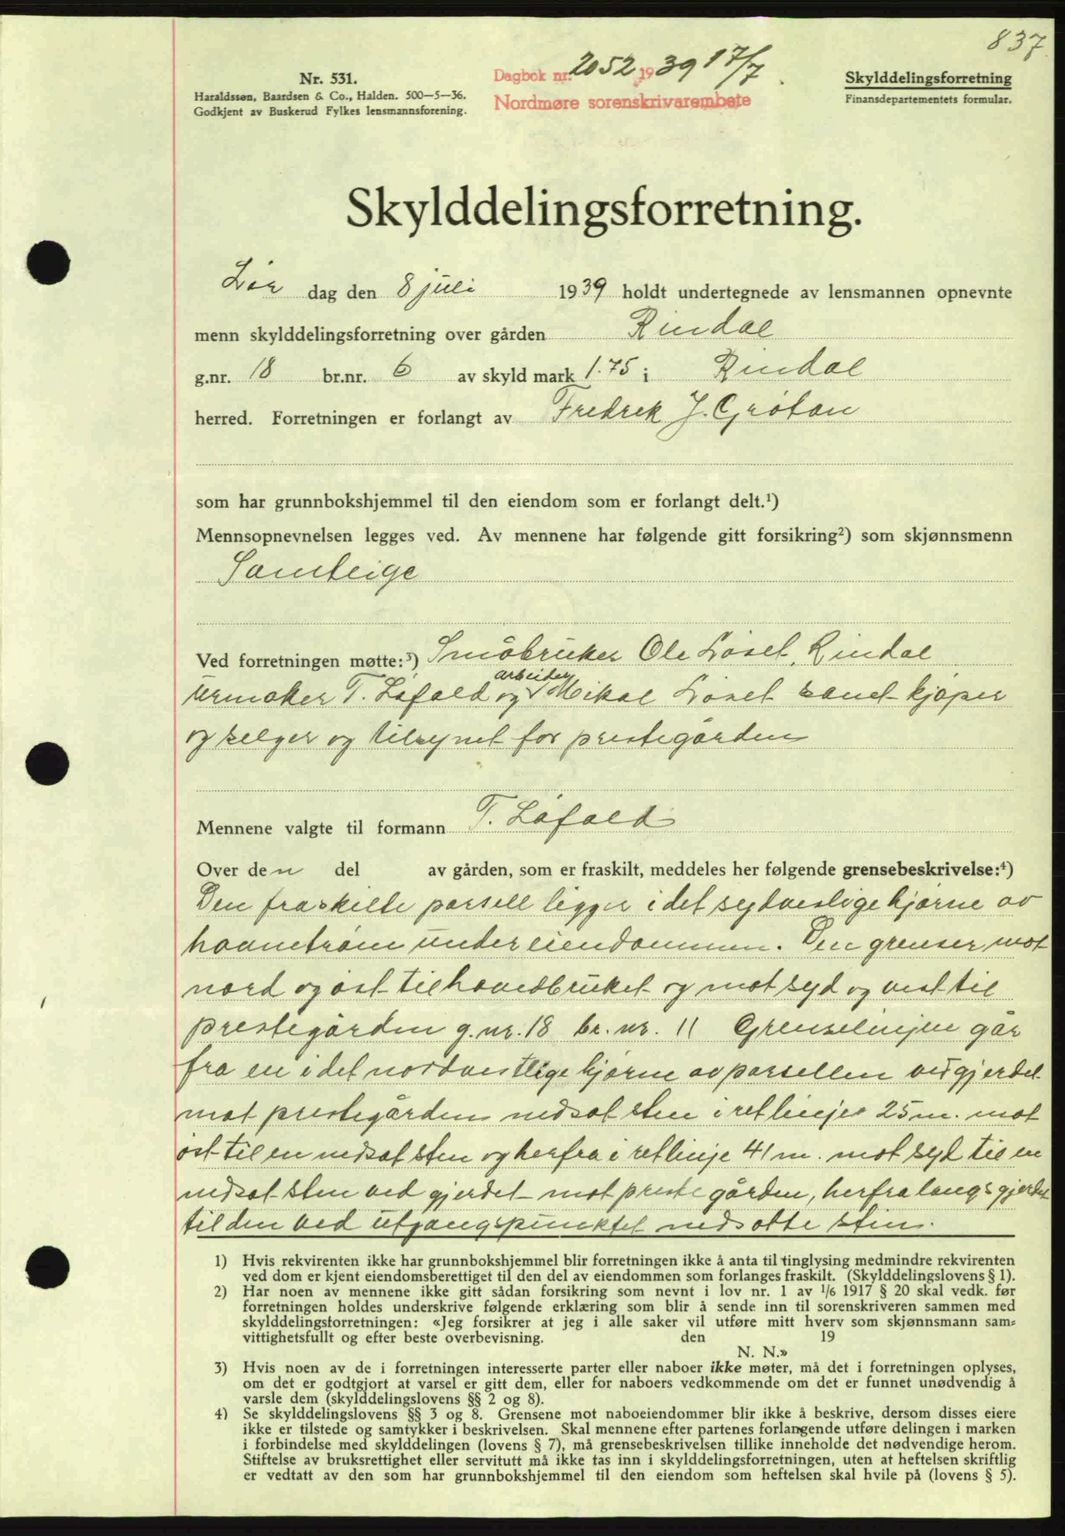 837
Nr. 531.
Haraldssøn, Baardsen & Co., Halden. 500—5—36.
Godkjent av Buskerud Fylkes lensmannsforening.
Dagbok nr. 2052 1939 17/7
Nordmøre sorenskrivarembete
Skylddelingsforretning
Finansdepartementets formular.
Skylddelingsforretning.
Lør dag den 8 juli 1939 holdt undertegnede av lensmannen opnevnte
menn skylddelingsforretning over gården Rindal
g.nr. 18 br.nr. 6 av skyld mark 1.75 i Rindal
herred. Forretningen er forlangt av Fredrik J. Grøtan
som har grunnbokshjemmel til den eiendom som er forlangt delt.¹)
Mennsopnevnelsen legges ved. Av mennene har følgende gitt forsikring²) som skjønnsmenn
Samtlige
Ved forretningen møtte:³) Småbruker Ole Løset, Rindal
urmaker T. Løfald og arbeider Mikal Løset samt kjøper
og selger og tilsynet for prestegården
Mennene valgte til formann T. Løfald
Over den del av gården, som er fraskilt, meddeles her følgende grensebeskrivelse:⁴)
Den fraskilte parsell ligger i det sydvestlige hjørne av
under eiendommen. Den grenser mot
nord og øst til hovedbruket og mot syd og vest til
prestegården g.nr. 18 br. nr. 11 Grenselinjen går
fra en i det nordvestlige hjørne av parsellen ved gjerdet
mot prestegården nedsat sten i ret linje 25 m. mot
øst til en nedsat sten og herfra i ret linje 41 m. mot syd til en
nedsat sten ved gjerdet mot prestegården, herfra langs gjerdet
til den ved utgangspunktet nedsatte sten.
1) Hvis rekvirenten ikke har grunnbokshjemmel blir forretningen ikke å anta til tinglysing medmindre rekvirenten
ved dom er kjent eiendomsberettiget til den del av eiendommen som forlanges fraskilt. (Skylddelingslovens § 1).
2) Har noen av mennene ikke gitt sådan forsikring som nevnt i lov nr. 1 av 1/6 1917 § 20 skal vedk. før
forretningen holdes underskrive følgende erklæring som blir å sende inn til sorenskriveren sammen med
skylddelingsforretningen: «Jeg forsikrer at jeg i alle saker vil utføre mitt hverv som skjønnsmann sam-
vittighetsfullt og efter beste overbevisning. den 19
N. N.»
3) Hvis noen av de i forretningen interesserte parter eller naboer ikke møter, må det i forretningen oplyses,
om det er godtgjort at varsel er gitt dem, eller for naboers vedkommende om det er funnet unødvendig å
varsle dem (skylddelingslovens §§ 2 og 8).
4) Se skylddelingslovens §§ 3 og 8. Grensene mot naboeiendommer blir ikke å beskrive, dersom disses eiere
ikke er tilstede og samtykker i beskrivelsen. Skal mennene efter partenes forlangende utføre delingen i marken
i forbindelse med skylddelingen (lovens § 7), må grensebeskrivelsen tillike inneholde det nødvendige herom.
Stiftelse av bruksrettighet eller servitutt må ikke tas inn i skylddelingsforretningen, uten at heftelsen skriftlig
er vedtatt av den som har grunnbokshjemmel til den eiendom som heftelsen skal hvile på (lovens § 5).